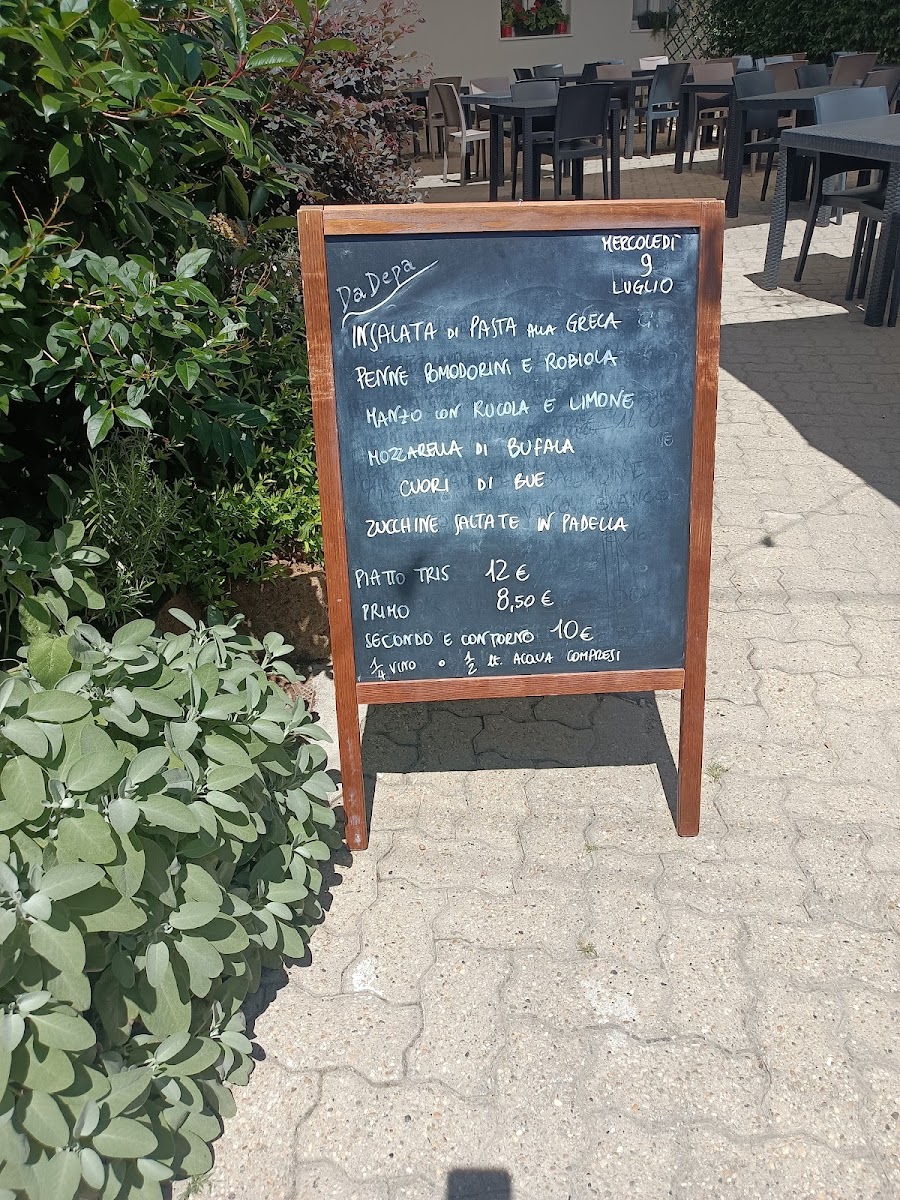 Da Depa
MERCOLEDÌ
9
LUGLIO
INSALATA DI PASTA ALLA GRECA
PENNE POMODORINI E ROBIOLA
MANZO CON RUCOLA E LIMONE
MOZZARELLA DI BUFALA
CUORI DI BUE
ZUCCHINE SALTATE IN PADELLA
PIATTO TRIS 12 €
PRIMO 8,50 €
SECONDO E CONTORNO 10 €
1/4 VINO O 1/2 LT. ACQUA COMPRESI